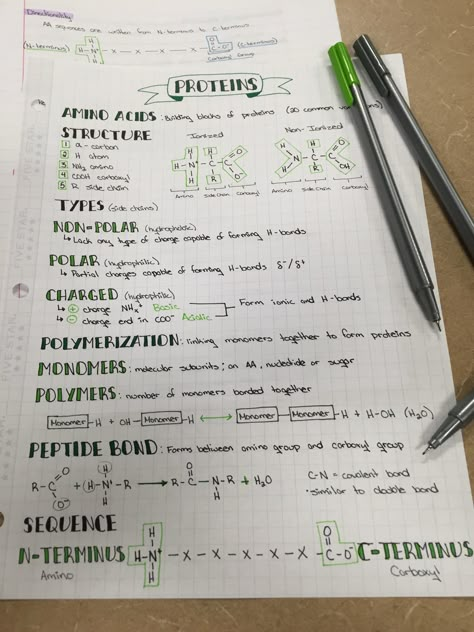 Directionality
AA sequences are written from N-terminus to C-terminus
(N-terminus) H-N-X-X-X-X-C-O⁻ (C-terminus)
Carboxyl Group
PROTEINS
AMINO ACIDS: Building blocks of proteins (20 common
STRUCTURE Ionized Non-Ionized
1 α-carbon
2 H atom
3 NH₂ amino
4 COOH carboxyl
5 R side chain
H H O
H-N⁺-C-C
H R O⁻
Amino Side Chain Carboxyl
H H O
N-C-C
H R OH
Amino Side Chain Carboxyl
TYPES (side chains)
NON-POLAR (hydrophobic)
↳ Lack any type of charge capable of forming H-bonds
POLAR (hydrophilic)
↳ Partial charges capable of forming H-bonds δ⁻/δ⁺
CHARGED (hydrophilic)
↳ + charge NHx⁺ Basic
↳ - charge end in COO⁻ Acidic
Form ionic and H-bonds
POLYMERIZATION: linking monomers together to form proteins
MONOMERS: molecular subunits; an AA, nucleotide or sugar
POLYMERS: number of monomers bonded together
Monomer-H + OH-Monomer-H ⟷ Monomer-Monomer-H + H-OH (H₂O)
PEPTIDE BOND: Forms between amine group and carboxyl group
O H O
R-C + H-N⁺-R → R-C-N-R + H₂O
O⁻ H H
C-N = covalent bond
· similar to double bond
SEQUENCE
H O
N-TERMINUS H-N⁺-X-X-X-X-X-C-O⁻ C-TERMINUS
H
Amino Carboxyl
FIVE STAR
FIVE STAR